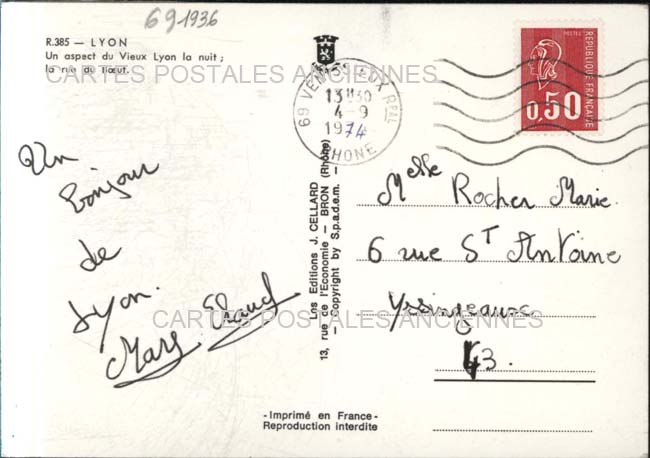 69 1936
R.385 — LYON
Un aspect du Vieux Lyon la nuit ;
la rue du Bœuf.
CARTES POSTALES ANCIENNES
Un
bonjour
de
Lyon.
CARTES POSTALES ANCIENNES
13, rue de l'Economie - BRON (Rhône)
Les Editions J. CELLARD
- Copyright by S.p.a.d.e.m. -
69 VENISSIEUX RPAL
13H30
4-9
1974
RHONE
POSTES
REPUBLIQUE FRANÇAISE
0,50
Melle Rocher Marie
6 rue St Antoine
Yssingeaux
43.
-Imprimé en France-
Reproduction interdite